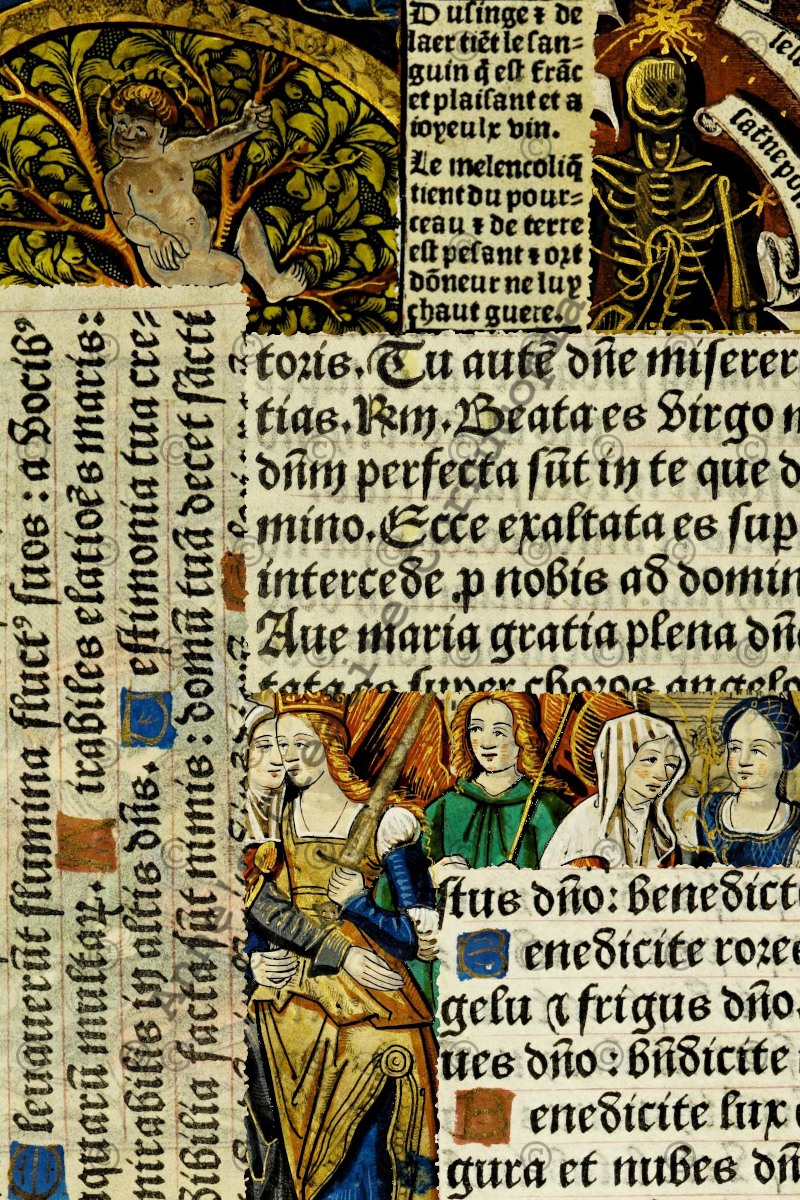 Dusinge ⁊ de
laer tiẽt le san=
guin q̃ est frãc
et plaisant et a
ioyeulx vin.
Le melencoliq̃
tient du pour=
ceau ⁊ de terre
est pesant ⁊ ort
dõneur ne luy
chaut guere.
toris. Tu autẽ dñe miserer
tias. Rm̃. Beata es virgo
dñm perfecta sũt in te que d
mino. Ecce exaltata es sup
intercede ꝓ nobis ad domin
Aue maria gratia plena dñ
tata es super choros angelo
leuauerũt flumina fluctꝰ suos: a vocibꝰ
aquarũ multaꝝ. Mirabiles elatiões maris:
mirabilis in altis dñs. Testimonia tua cre=
dibilia facta sũt nimis: domũ tuã decet sãcti
stus dño: benedict
Benedicite rores
gelu ⁊ frigus dño.
ues dño: bñdicite
Benedicite lux
gura et nubes dñ